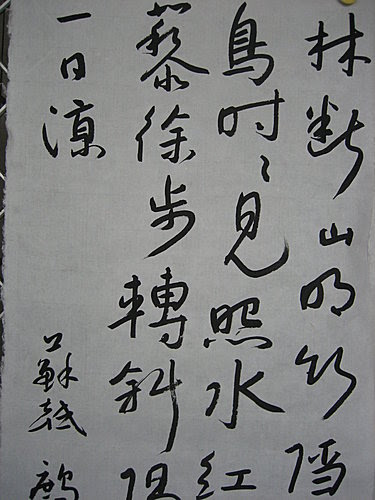 林断山明竹隐
鳥时々見照水紅
藜徐步轉斜阳
一日凉 蘇軾 鹧